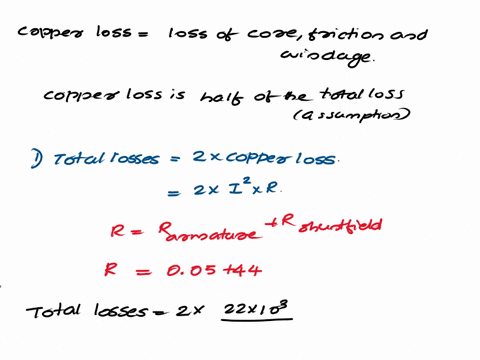 copper loss = loss of core, friction and
windage.
copper loss is half of the total loss
(assumption)
1) Total losses = 2 x copper loss.
= 2 x I² x R.
R = Rarmature + R shuntfield
R = 0.05 + 44
Total losses = 2 x 22x10³